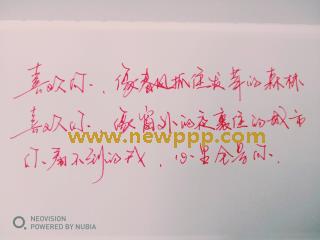 喜欢你,像春风抓住发芽的森林
喜欢你,像窗外的夜裹住的城市
你看不到的我,心里全是你.
www.newppp.com
NEOVISION
POWERED BY NUBIA